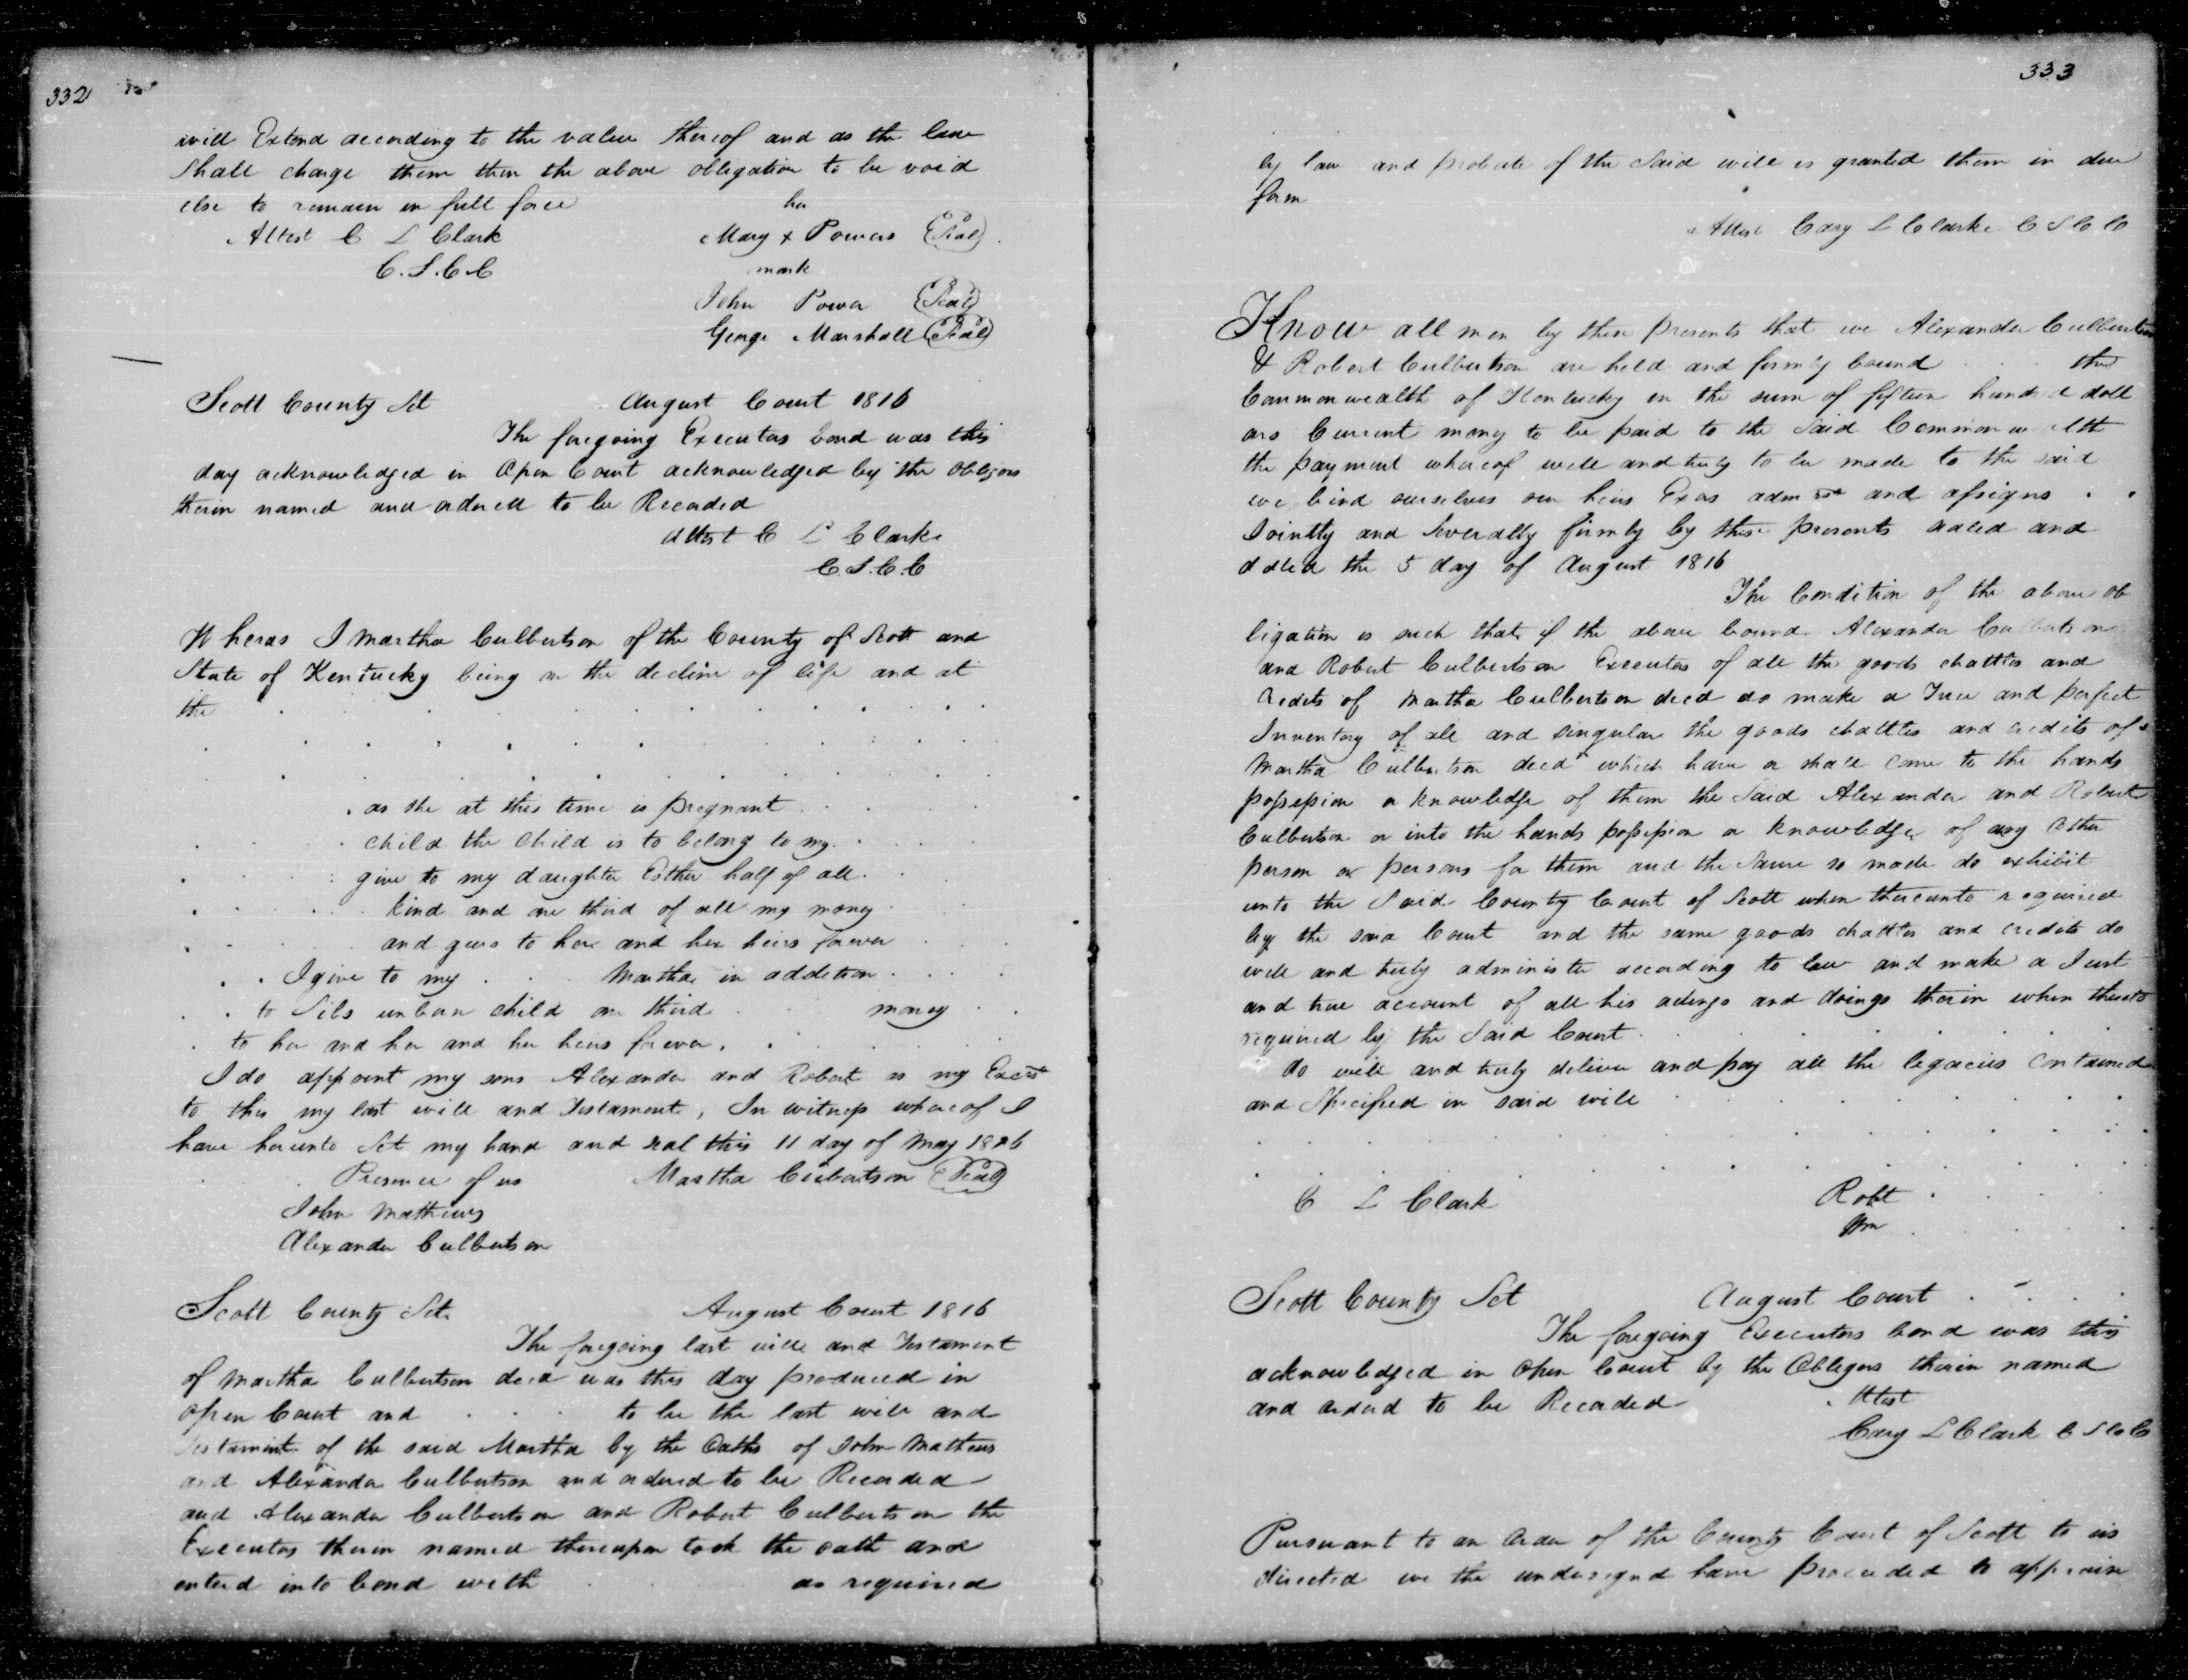 332
will Extend according to the value thereof and as the law
Shall charge them then the above obligation to be void
else to remain in full force
her
Attest C L Clark
Mary x Powers (Seal)
C.S.C.C
mark
John Power (Seal)
George Marshall (Seal)
Scott County Sct August Court 1816
The foregoing Executors bond was this
day acknowledged in Open Court acknowledged by the Obligors
therein named and ordered to be Recorded
Attest C L Clarke
C.S.C.C
Wheras I Martha Culbertson of the County of Scott and
State of Kentucky being in the decline of life and at
the
as she at this time is pregnant
child the child is to belong to my
give to my daughter Esther half of all
kind and one third of all my money
and goes to her and her heirs forever
I give to my Martha in addition
to Sils unborn child one third money
to her and her and her heirs forever
I do appoint my sons Alexander and Robert as my Excrs
to this my last will and Testament, In witness whereof I
have hereunto Set my hand and seal this 11 day of May 1816
Presence of us Martha Culbertson (Seal)
John Mathews
Alexander Culbertson
Scott County Sct August Court 1816
The foregoing last will and Testament
of Martha Culbertson decd was this day produced in
open Court and to be the last will and
Testament of the said Martha by the Oaths of John Mathews
and Alexander Culbertson and ordered to be Recorded
and Alexander Culbertson and Robert Culbertson the
Executors therein named thereupon took the oath and
entered into bond with as required
333
by law and probate of the Said will is granted them in due
form
Attest Cary L Clarke C S C C
Know all men by these presents that we Alexander Culbertson
& Robert Culbertson are held and firmly bound the
Commonwealth of Kentucky in the sum of fifteen hundred doll
ars Current money to be paid to the Said Commonwealth
the payment whereof well and truly to be made to the said
we bind ourselves our heirs Exors admrs and assigns
Jointly and Severally firmly by these presents sealed and
dated the 5 day of August 1816
The Condition of the above ob
ligation is such that if the above bound Alexander Culbertson
and Robert Culbertson Executors of all the goods chattles and
credits of Martha Culbertson decd do make a True and perfect
Inventory of all and singular the goods chattles and credits of
Martha Culbertson decd which have or shall come to the hands
possession or knowledge of them the Said Alexander and Robert
Culbertson or into the hands possession or knowledge of any other
person or persons for them and the Same so made do exhibit
unto the Said County Court of Scott when thereunto required
by the said Court and the same goods chattles and credits do
well and truly administer according to law and make a Just
and true account of all his actings and doings therein when thereto
required by the Said Court
do well and truly deliver and pay all the legacies contained
and Specified in said will
C L Clark Robt
Wm
Scott County Sct August Court
The foregoing Executors bond was this
acknowledged in Open Court by the Obligors therein named
and ordered to be Recorded Attest
Cary L Clark C S C C
Pursuant to an Order of the County Court of Scott to us
directed we the undersigned have proceeded to appraise